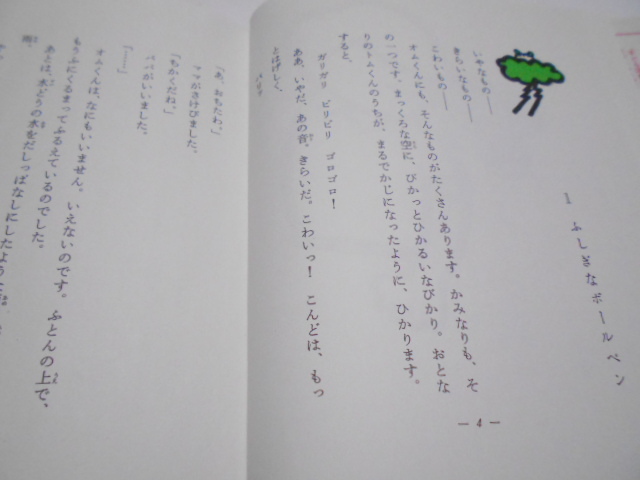 1 ふしぎなボールペン
いやなもの――
きらいなもの――
こわいもの――
オムくんにも、そんなものがたくさんあります。かみなりも、そ
の一つです。まっくろな空に、ぴかっとひかるいなびかり。おとな
りのトムくんのうちが、まるでかじになったように、ひかります。
すると、
ガリガリ ビリビリ ゴロゴロ!
ああ、いやだ、あの音。きらいだ。こわいっ! こんどは、もっ
とはげしく、
― 4 ―
「あ、おちたわ。」
ママがさけびました。
「ちかくだね。」
パパがいいました。
「……」
オムくんは、なにもいいません。いえないのです。ふとんの上で、
もうふにくるまってふるえているのでした。
あとは、水どうの水をだしっぱなしにしたような
雨。